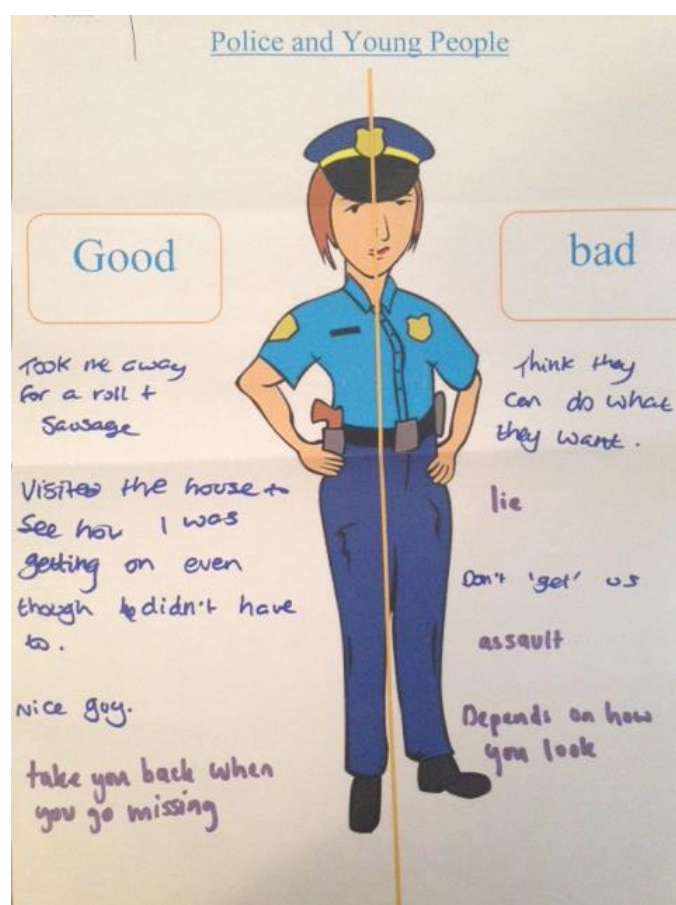 Police and Young People
Good
Took me away
for a roll +
Sausage
Visited the house to
See how I was
getting on even
though he didn't have
to.
Nice guy.
take you back when
you go missing
bad
Think they
can do what
they want.
lie
Don't 'get' us
assault
Depends on how
you look